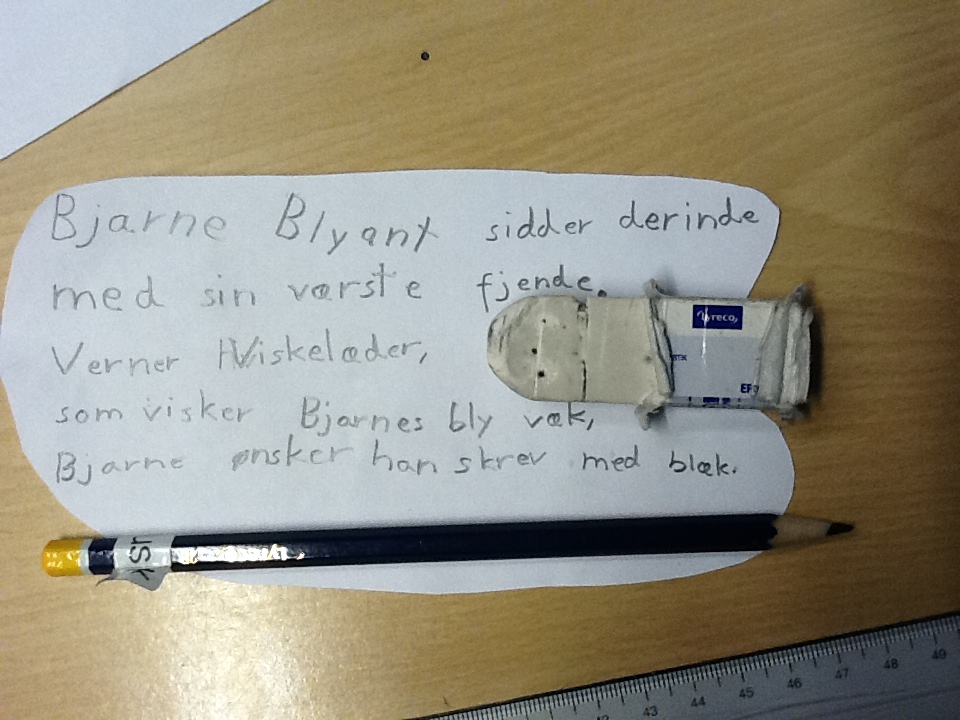 Bjarne Blyant sidder derinde
med sin værste fjende.
Verner Viskelæder,
som visker Bjarnes bly væk,
Bjarne ønsker han skrev med blæk.
lyreco
43 44 45 46 47 48 49